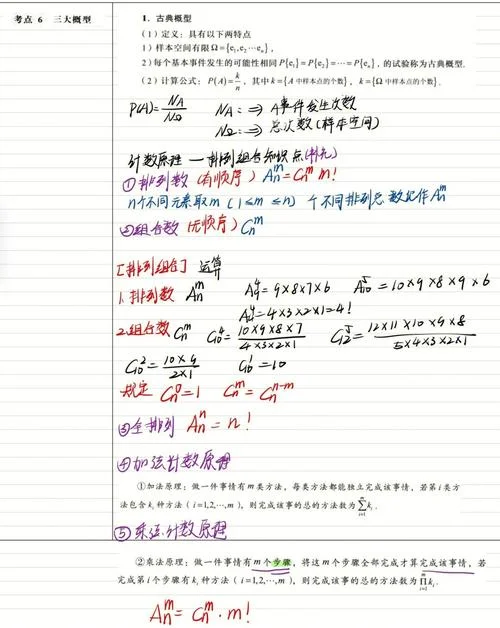 考点 6 三大概型
1. 古典概型
(1) 定义：具有以下两特点
1) 样本空间有限Ω={e₁,e₂…eₙ}，
2) 每个基本事件发生的可能性相同P{e₁}=P{e₂}=…=P{eₙ}，的试验称为古典概型.
(2) 计算公式：P(A)=k/n，其中k={A中样本点的个数}，k={Ω中样本点的个数}.
P(A)=N_A/N_Ω N_A：⇒ A事件发生次数
N_Ω：⇒ 总次数(样本空间)
计数原理 — 排列组合知识点(补充)
①排列数(有顺序) Aₙᵐ=Cₙᵐ m!
n个不同元素取m (1≤m≤n) 个不同排列总数记作Aₙᵐ
②组合数(无顺序) Cₙᵐ
[排列组合] 运算
1.排列数 Aₙᵐ A₉⁴=9×8×7×6 A₁₀⁵=10×9×8×9×6
A₄⁴=4×3×2×1=4!
2.组合数 Cₙᵐ C₁₀⁴=10×9×8×7/4×3×2×1 C₁₂⁵=12×11×10×9×8/5×4×3×2×1
C₁₀²=10×9/2×1 C₁₀¹=10
规定 Cₙ⁰=1 Cₙᵐ=Cₙⁿ⁻ᵐ
③全排列 Aₙⁿ=n!
④加法计数原理
①加法原理：做一件事情有m类方法，每类方法都能独立完成该事情，若第i类方
法包含kᵢ种方法(i=1,2,…,m)，则完成该事的总的方法数为∑ᵢ₌₁ᵐkᵢ.
⑤乘法计数原理
②乘法原理：做一件事情有m个步骤，将这m个步骤全部完成才算完成该事情，若
完成第i个步骤有kᵢ种方法(i=1,2,…,m)，则完成该事的总的方法数为∏ᵢ₌₁ᵐkᵢ.
Aₙᵐ=Cₙᵐ·m!